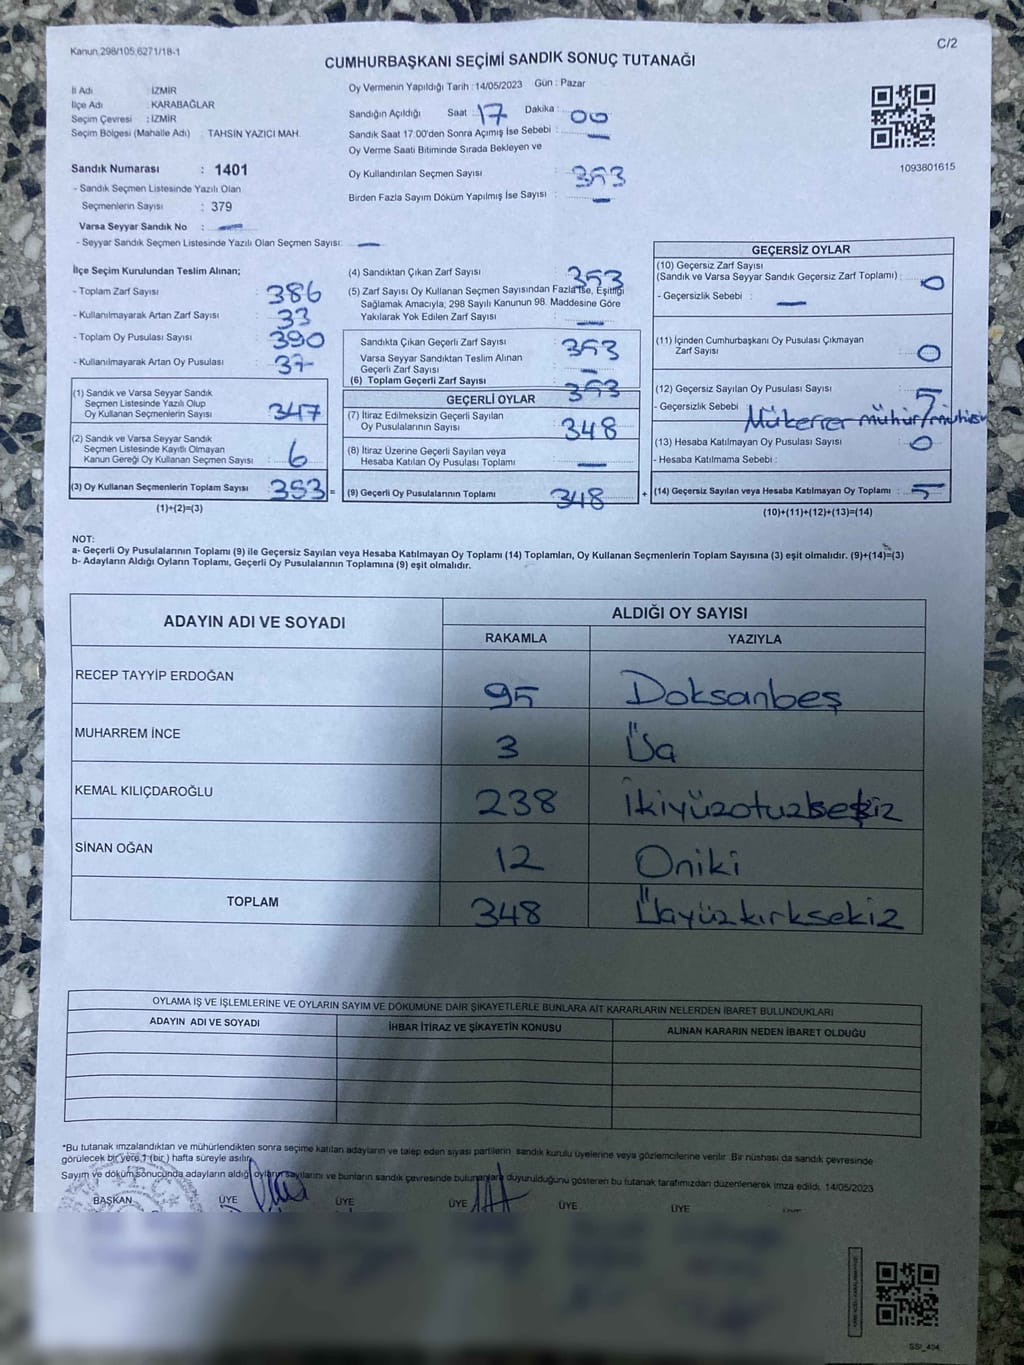 Kanun 298/105,6271/18-1
C/2
CUMHURBAŞKANI SEÇİMİ SANDIK SONUÇ TUTANAĞI
İl Adı : İZMİR
İlçe Adı : KARABAĞLAR
Seçim Çevresi : İZMİR
Seçim Bölgesi (Mahalle Adı) : TAHSİN YAZICI MAH.
Sandık Numarası : 1401
- Sandık Seçmen Listesinde Yazılı Olan
Seçmenlerin Sayısı : 379
Varsa Seyyar Sandık No : —
- Seyyar Sandık Seçmen Listesinde Yazılı Olan Seçmen Sayısı: —
Oy Vermenin Yapıldığı Tarih : 14/05/2023 Gün : Pazar
Sandığın Açıldığı Saat : 17 Dakika : 00
Sandık Saat 17:00'den Sonra Açımış İse Sebebi : —
Oy Verme Saati Bitiminde Sırada Bekleyen ve
Oy Kullandırılan Seçmen Sayısı : 353
Birden Fazla Sayım Döküm Yapılmış İse Sayısı : —
1093801615
İlçe Seçim Kurulundan Teslim Alınan;
- Toplam Zarf Sayısı : 386
- Kullanılmayarak Artan Zarf Sayısı : 33
- Toplam Oy Pusulası Sayısı : 390
- Kullanılmayarak Artan Oy Pusulası : 37
(1) Sandık ve Varsa Seyyar Sandık
Seçmen Listesinde Yazılı Olup
Oy Kullanan Seçmenlerin Sayısı : 347
(2) Sandık ve Varsa Seyyar Sandık
Seçmen Listesinde Kayıtlı Olmayan
Kanun Gereği Oy Kullanan Seçmen Sayısı : 6
(3) Oy Kullanan Seçmenlerin Toplam Sayısı : 353 =
(1)+(2)=(3)
(4) Sandıktan Çıkan Zarf Sayısı : 353
(5) Zarf Sayısı Oy Kullanan Seçmen Sayısından Fazla İse, Eşitliği
Sağlamak Amacıyla; 298 Sayılı Kanunun 98. Maddesine Göre
Yakılarak Yok Edilen Zarf Sayısı : —
Sandıkta Çıkan Geçerli Zarf Sayısı : 353
Varsa Seyyar Sandıktan Teslim Alınan
Geçerli Zarf Sayısı : —
(6) Toplam Geçerli Zarf Sayısı : 353
GEÇERLİ OYLAR
(7) İtiraz Edilmeksizin Geçerli Sayılan
Oy Pusulalarının Sayısı : 348
(8) İtiraz Üzerine Geçerli Sayılan veya
Hesaba Katılan Oy Pusulası Toplamı : —
(9) Geçerli Oy Pusulalarının Toplamı : 348 +
GEÇERSİZ OYLAR
(10) Geçersiz Zarf Sayısı
(Sandık ve Varsa Seyyar Sandık Geçersiz Zarf Toplamı) : 0
- Geçersizlik Sebebi : —
(11) İçinden Cumhurbaşkanı Oy Pusulası Çıkmayan
Zarf Sayısı : 0
(12) Geçersiz Sayılan Oy Pusulası Sayısı : 5
- Geçersizlik Sebebi : Mükerrer mühür/
(13) Hesaba Katılmayan Oy Pusulası Sayısı : 0
- Hesaba Katılmama Sebebi :
(14) Geçersiz Sayılan veya Hesaba Katılmayan Oy Toplamı : 5
(10)+(11)+(12)+(13)=(14)
NOT:
a- Geçerli Oy Pusulalarının Toplamı (9) ile Geçersiz Sayılan veya Hesaba Katılmayan Oy Toplamı (14) Toplamları, Oy Kullanan Seçmenlerin Toplam Sayısına (3) eşit olmalıdır. (9)+(14)=(3)
b- Adayların Aldığı Oyların Toplamı, Geçerli Oy Pusulalarının Toplamına (9) eşit olmalıdır.
ADAYIN ADI VE SOYADI ALDIĞI OY SAYISI
RAKAMLA YAZIYLA
RECEP TAYYİP ERDOĞAN 95 Doksanbeş
MUHARREM İNCE 3 Üç
KEMAL KILIÇDAROĞLU 238 İkiyüzotuzsekiz
SİNAN OĞAN 12 Oniki
TOPLAM 348 Üçyüzkırksekiz
OYLAMA İŞ VE İŞLEMLERİNE VE OYLARIN SAYIM VE DÖKÜMÜNE DAİR ŞİKAYETLERLE BUNLARA AİT KARARLARIN NELERDEN İBARET BULUNDUKLARI
ADAYIN ADI VE SOYADI İHBAR İTİRAZ VE ŞİKAYETİN KONUSU ALINAN KARARIN NEDEN İBARET OLDUĞU
*Bu tutanak imzalandıktan ve mühürlendikten sonra seçime katılan adayların ve talep eden siyasi partilerin sandık kurulu üyelerine veya gözlemcilerine verilir. Bir nüshası da sandık çevresinde
görülecek bir yere 1 (bir) hafta süreyle asılır.
Sayım ve döküm sonucunda adayların aldığı oyların sayılarını ve bunların sandık çevresinde bulunanlara duyurulduğunu gösteren bu tutanak tarafımızdan düzenlenerek imza edildi. 14/05/2023
BAŞKAN ÜYE ÜYE ÜYE ÜYE ÜYE